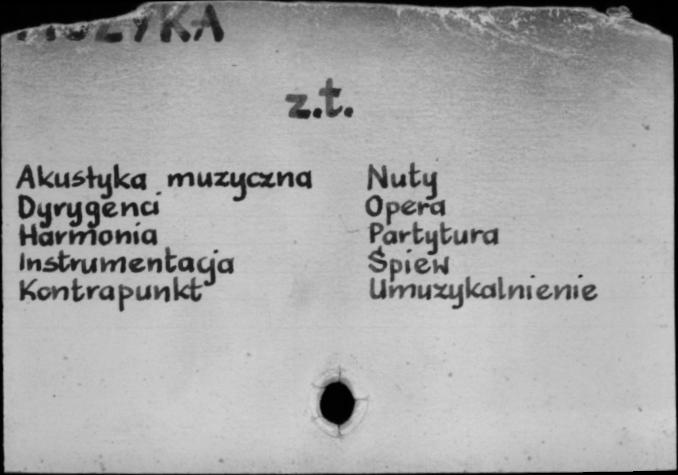 MUZYKA
z.t.
Akustyka muzyczna
Dyrygenci
Harmonia
Instrumentacja
Kontrapunkt
Nuty
Opera
Partytura
Śpiew
Umuzykalnienie